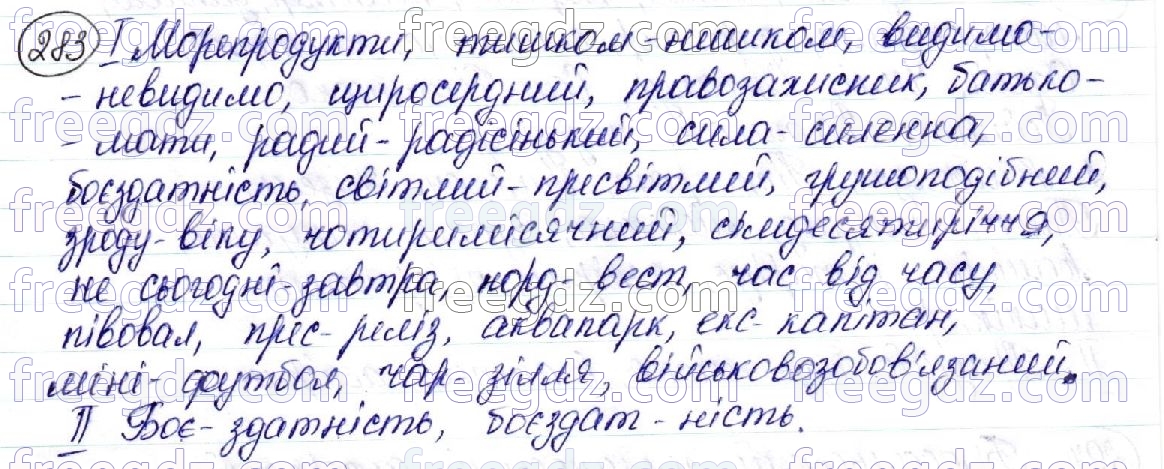 283 I Морепродукти, тишком-нишком, видимо-
- невидимо, щиросердний, правозахисник, батько-
- мати, радий-радісінький, сила-силенна,
боєздатність, світлий-пресвітлий, грушоподібний,
зроду-віку, чотиримісячний, сімдесятиріччя,
не сьогодні-завтра, норд-вест, час від часу,
півовал, прес-реліз, аквапарк, екс-капітан,
міні-футбол, чар зілля, військовозобов'язаний.
II Боє-здатність, боєздат-ність.